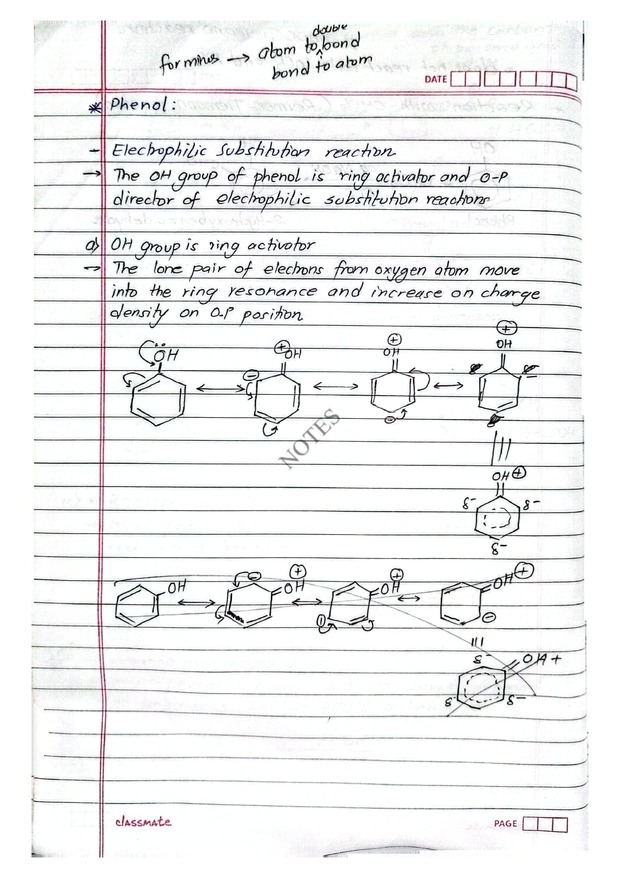 double
for minus → atom to bond
bond to atom
DATE
* Phenol :
- Electrophilic Substitution reaction
→ The OH group of phenol is ring activator and O-P
director of electrophilic substitution reactions
a) OH group is ring activator
→ The lone pair of electrons from oxygen atom move
into the ring resonance and increase on charge
density on O.P position
ÖH ⊕OH ⊕ OH ⊕ OH
⊖ ⊖ −
NOTES
OH⊕
δ− δ−
δ−
OH ⊖ ⊕ OH ⊕ OH ⊕ OH
⊖ ⊖
δ− OH+
δ− δ−
classmate
PAGE